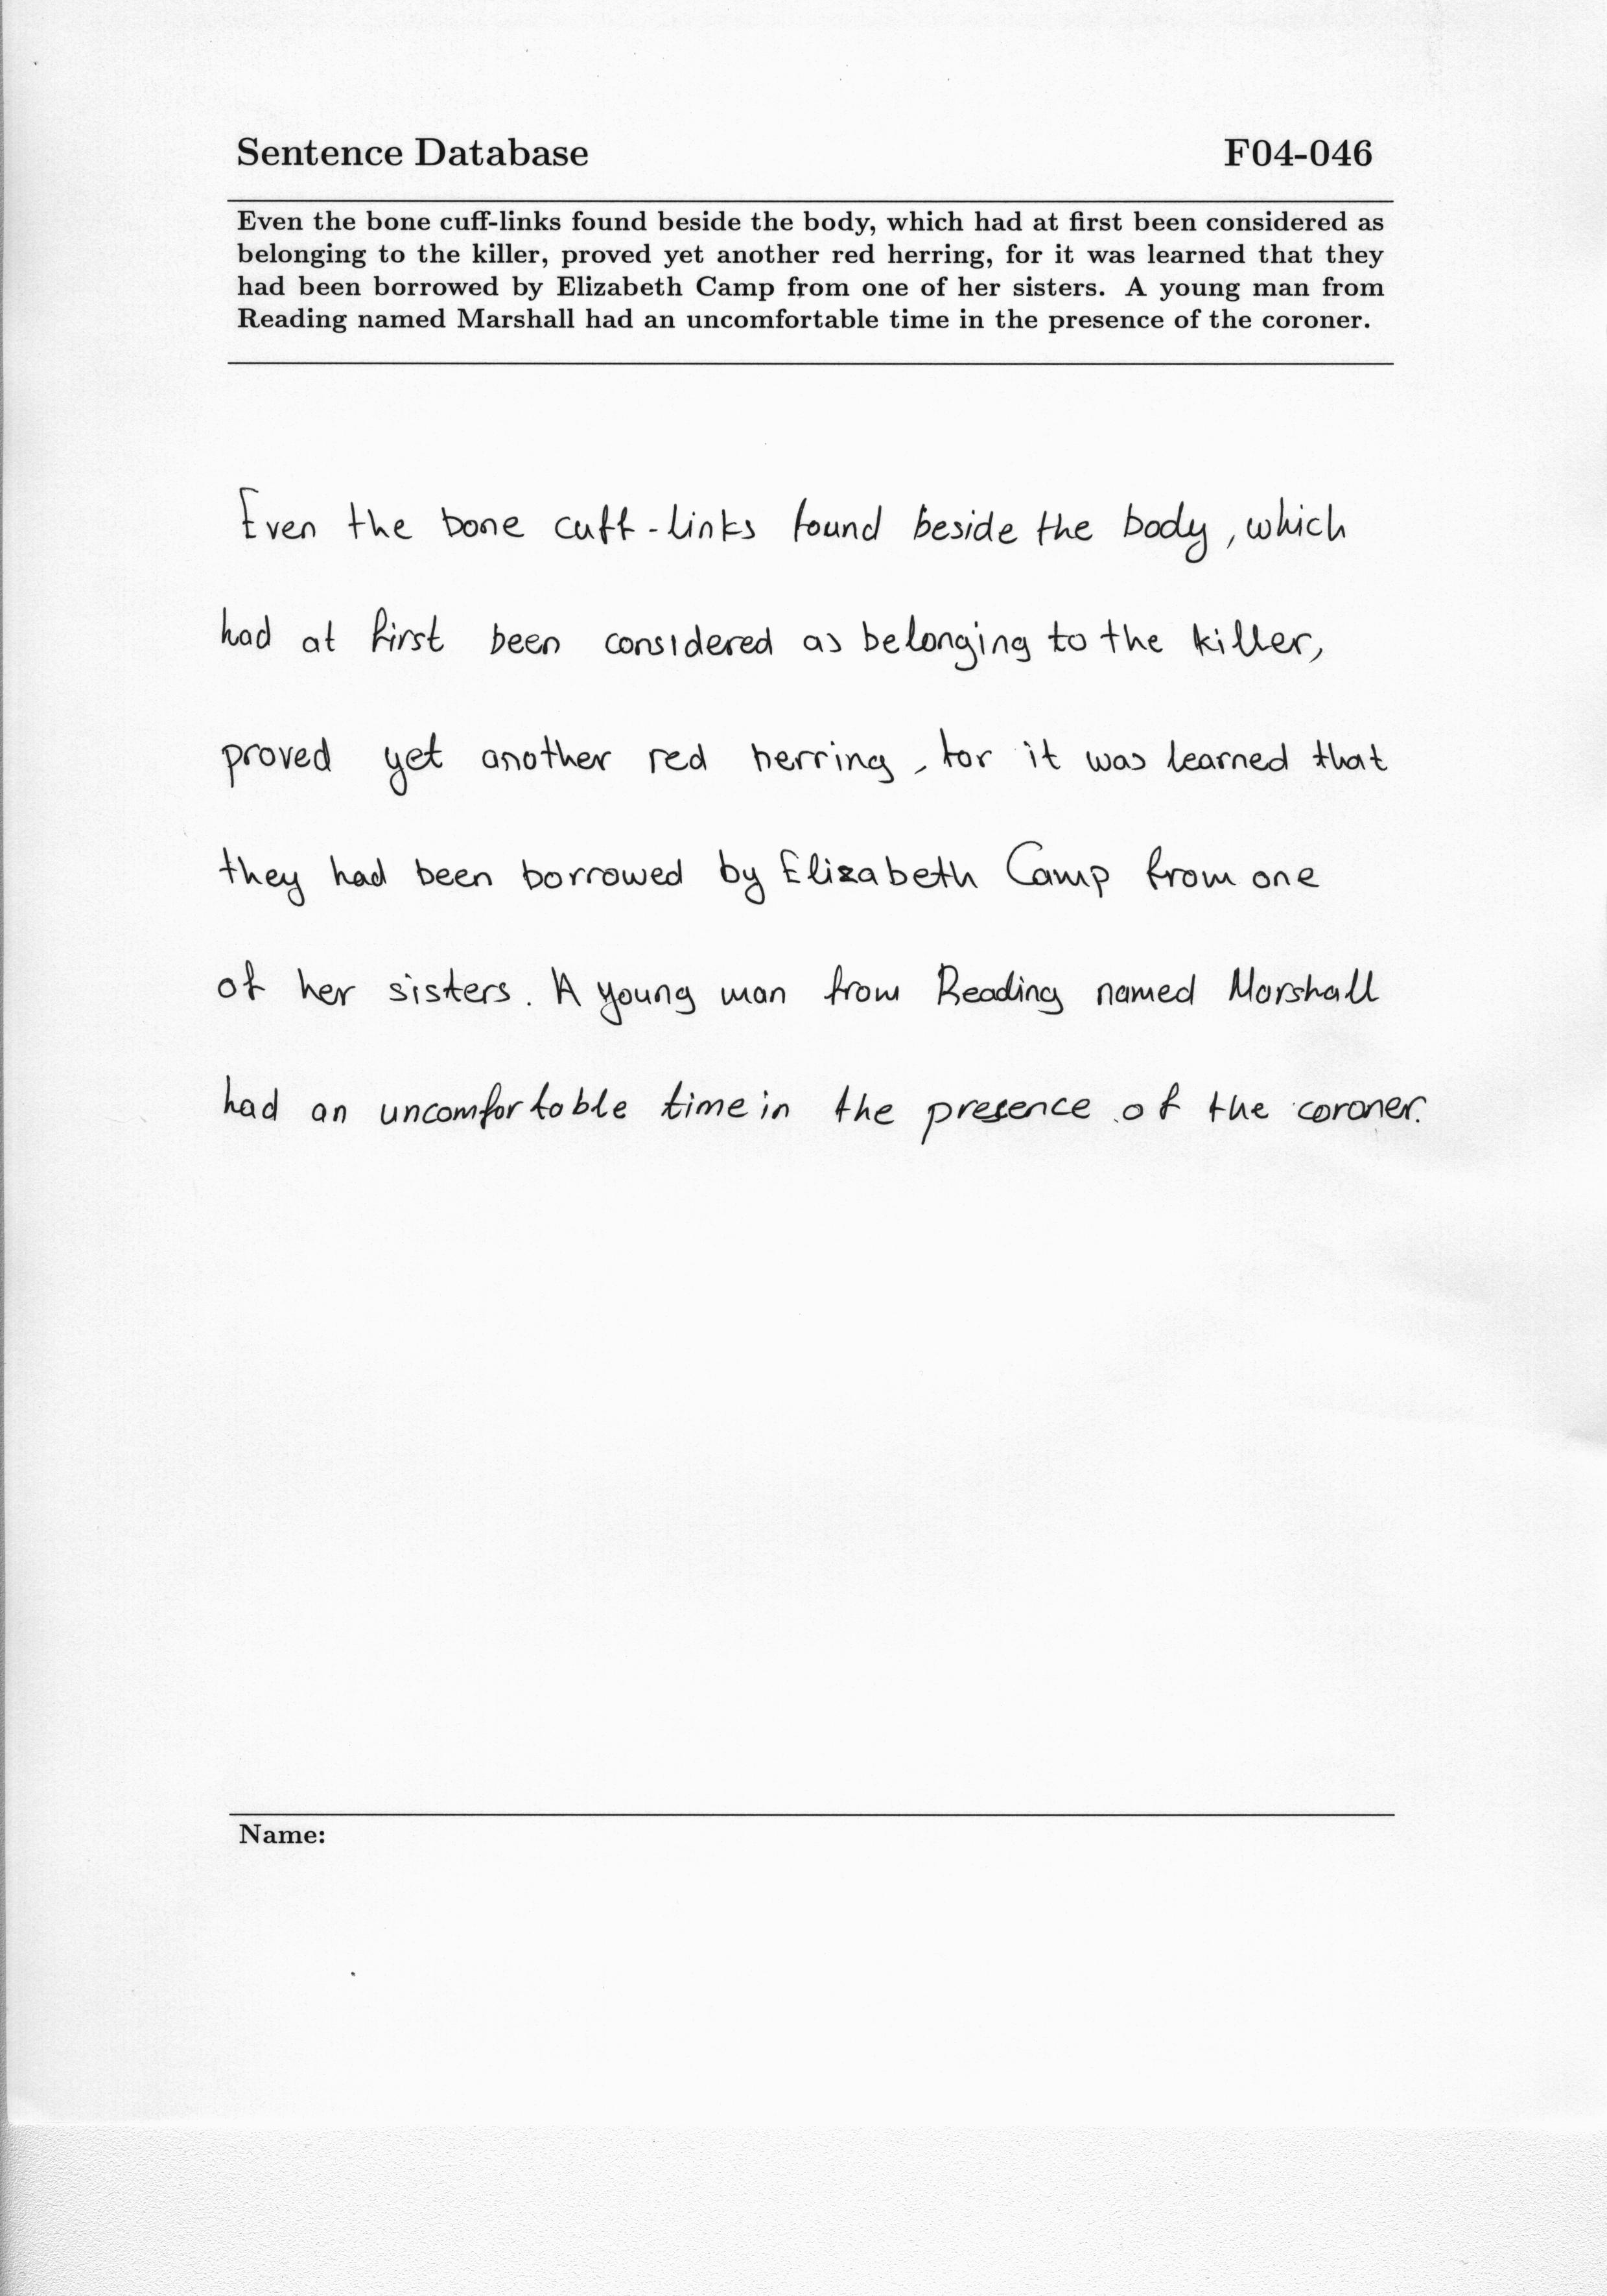 Sentence Database F04-046
Even the bone cuff-links found beside the body, which had at first been considered as
belonging to the killer, proved yet another red herring, for it was learned that they
had been borrowed by Elizabeth Camp from one of her sisters. A young man from
Reading named Marshall had an uncomfortable time in the presence of the coroner.
Even the bone cuff-links found beside the body, which
had at first been considered as belonging to the killer,
proved yet another red herring, for it was learned that
they had been borrowed by Elizabeth Camp from one
of her sisters. A young man from Reading named Marshall
had an uncomfortable time in the presence of the coroner.
Name: